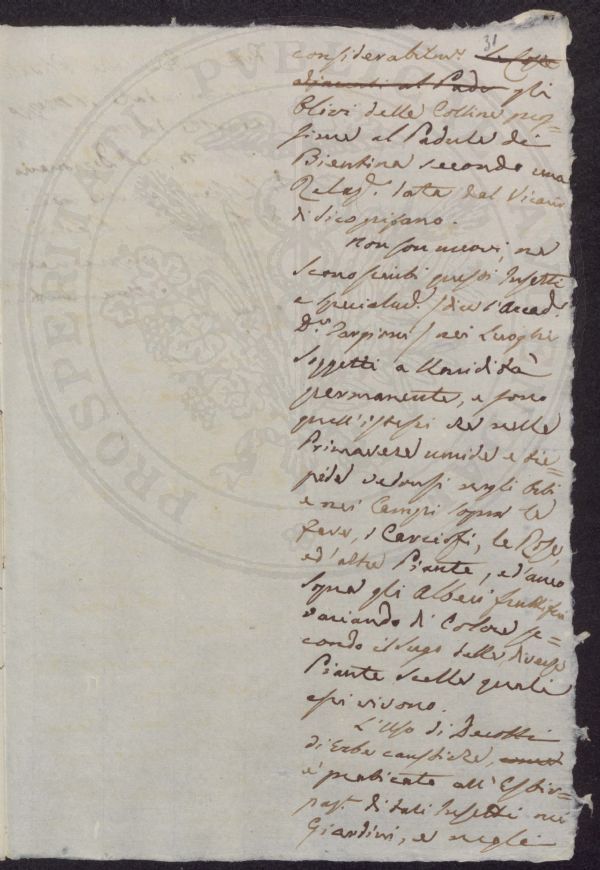 31
considerabilm.e Le Coste
adjacenti al Padu gli
Olivi delle Colline pros=
sime al Padule di
Bientina secondo una
Relaz.e fata dal Vicario
di Vicopisano.
Non son nuovi, ne
sconosciuti questi Insetti
e specialm.e (dice l'Accad.
D.r Targioni) nei Luoghi
soggetti a Umidità
permanente, e sono
quell'istessi che nelle
Primavere umide e tie=
pide vedonsi negli Orti
e nei Campi sopra le
fave, i Carciofi, le Rose,
ed'altre Piante, ed'anco
sopra gli Alberi fruttiferi
variando di Colore se=
condo il sugo delle diverse
Piante sulle quali
essi vivono.
L'Uso di Decotti
di Erbe caustiche,
è praticato all'Estir=
paz.e di tali Insetti nei
Giardini, e negli
PROSPERITATI PVBLICAE AV